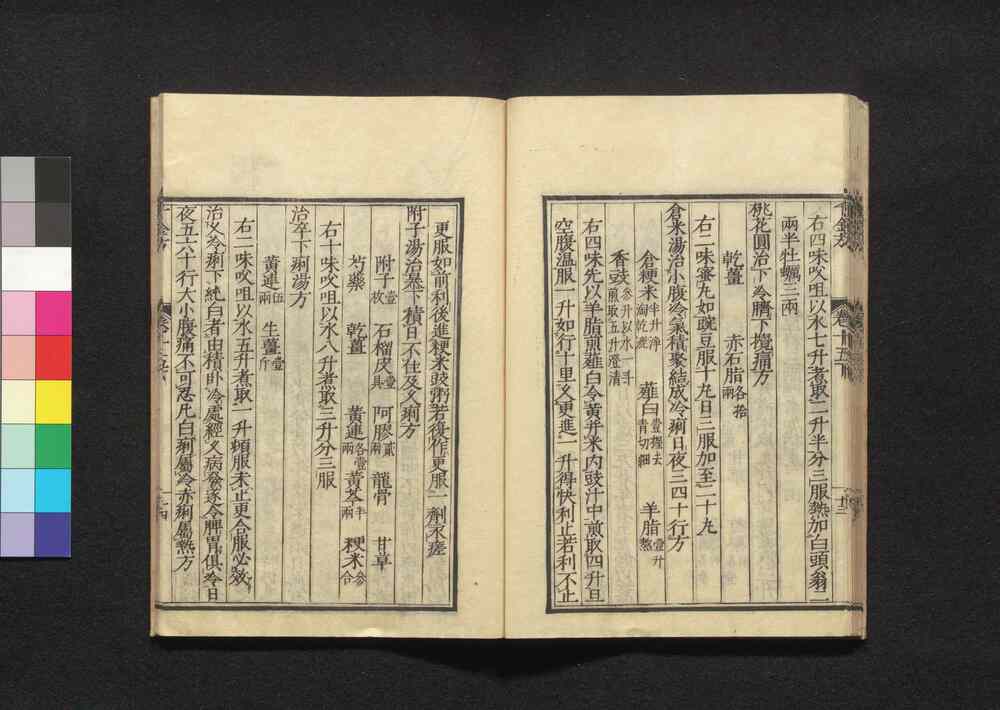 右四味㕮咀以水七升煮取二升半分三服熱加白頭翁一
兩半牡蠣三兩
桃花圓治下冷臍下攪痛方
乾薑 赤石脂各拾兩
右二味蜜丸如豌豆服十丸日三服加至二十丸
倉米湯治小腹冷氣積聚結成冷痢日夜三四十行方
倉粳米半升淨淘乾漉 薤白壹握去青切細 羊脂壹升熬
香豉參升以水一斗煎取五升澄清
右四味先以羊脂煎薤白令黃并米內豉汁中煎取四升旦
空腹溫服一升如行十里久更進一升得快利止若利不止
更服如前利後進粳米豉粥若復作更服一劑永瘥
附子湯治暴下積日不住及久痢方
附子壹枚 石榴皮壹具 阿膠貳兩 龍骨 甘草
芍藥 乾薑 黃連各壹兩 黃芩半兩 粳米參合
右十味㕮咀以水八升煮取三升分三服
治卒下痢湯方
黃連伍兩 生薑壹斤
右二味㕮咀以水五升煮取一升頓服未止更合服必效
治久冷痢下純白者由積臥冷處經久病發遂令脾胃俱冷日
夜五六十行大小腹痛不可忍凡白痢屬冷赤痢屬熱方